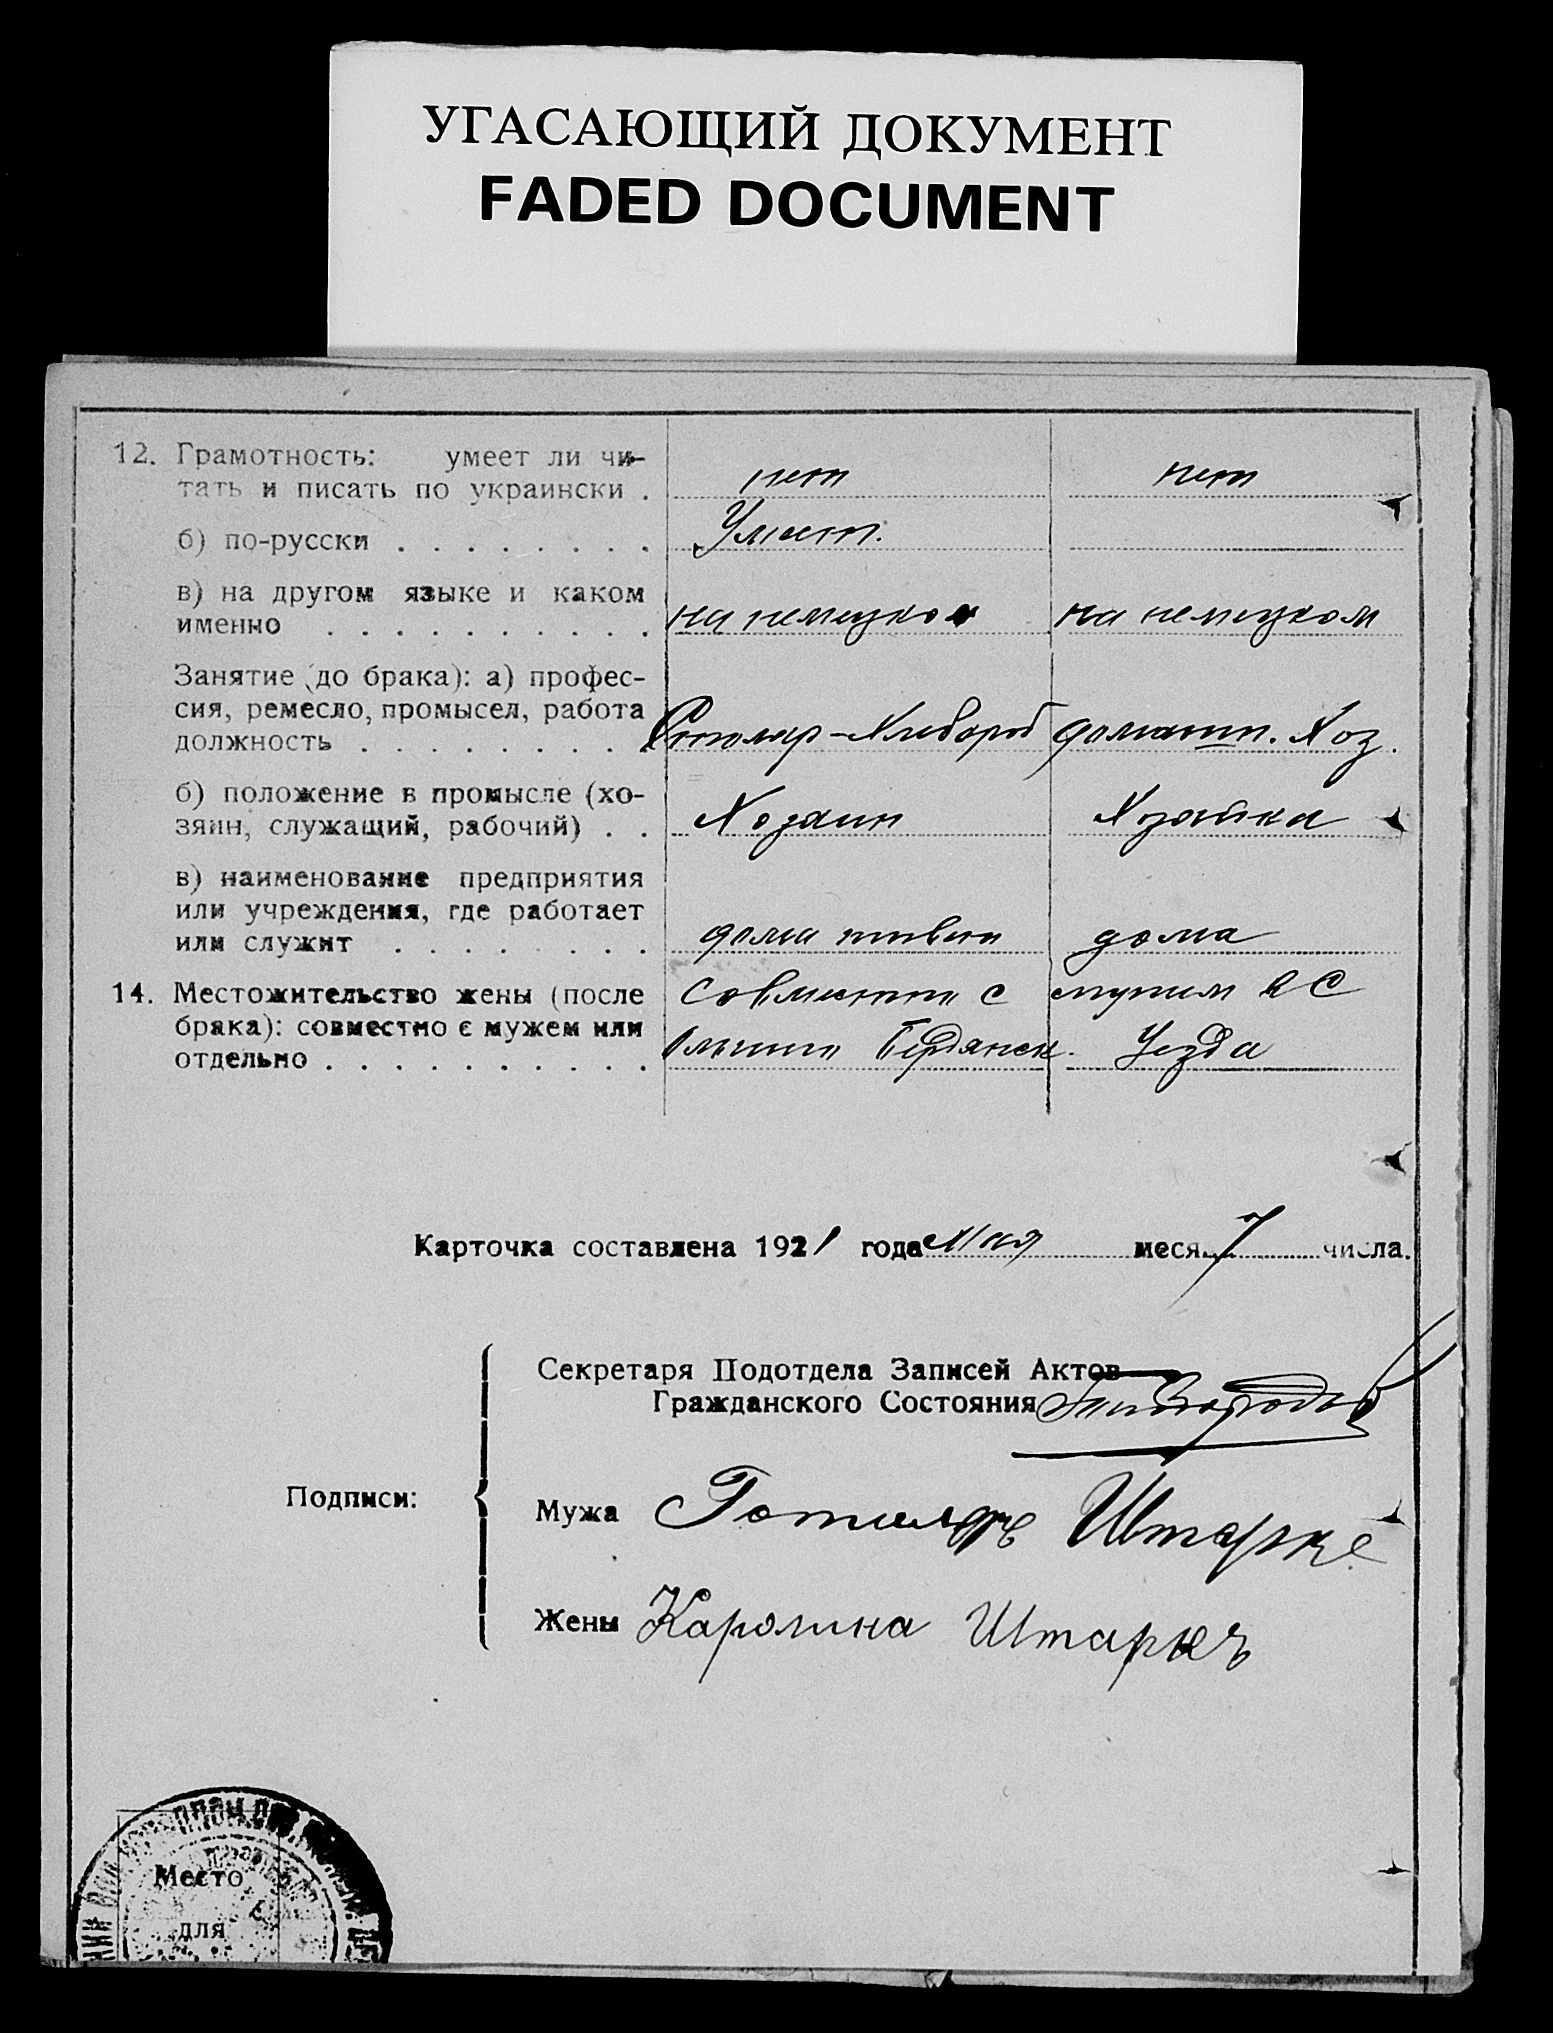 УГАСАЮЩИЙ ДОКУМЕНТ
FADED DOCUMENT
12. Грамотность: умеет ли чи-
тать и писать по украински . нет нет
б) по-русски . . . . . . . . Умеет.
в) на другом языке и каком
именно . . . . . . . . . . на немецком на немецком
Занятие (до брака): а) профес-
сия, ремесло, промысел, работа
должность . . . . . . . . Столяр-Хлебороб домашн. Хоз.
б) положение в промысле (хо-
зяин, служащий, рабочий) . . Хозяин Хозяйка
в) наименование предприятия
или учреждения, где работает
или служит . . . . . . . дома дома
14. Местожительство жены (после Совместно с мужем в С
брака): совместно с мужем или
отдельно . . . . . . . . . . Бердянск. Уезда
Карточка составлена 1921 года Мая меся 7 числа.
Секретаря Подотдела Записей Актов
Гражданского Состояния
Подписи:
Мужа Готлиб Штарке
Жены Каролина Штарке
Место
для